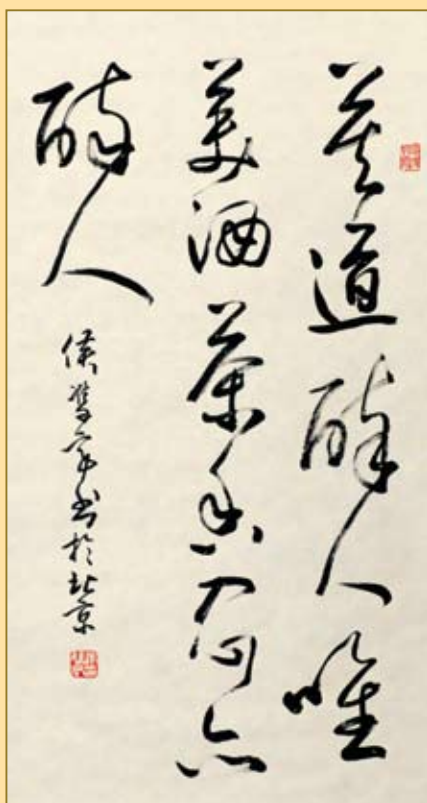 莫道醉人唯
美酒茶香入心亦
醉人
侯书於北京